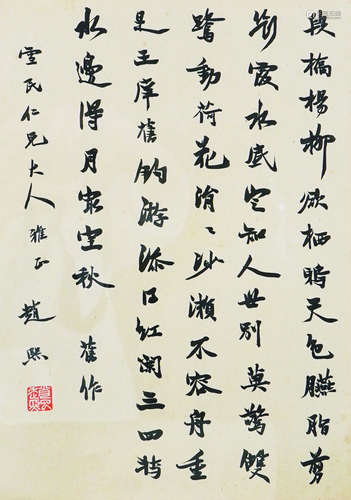 段橋楊柳欲栖鴉天色臙脂剪
劉霞水底定知人世別莫驚雙
鷺動荷花涓〻沙瀨不容舟重
是王官舊釣游添得紅闌三四轉
水邊得月最宜秋 舊作
雲民仁兄大人雅正 趙熙